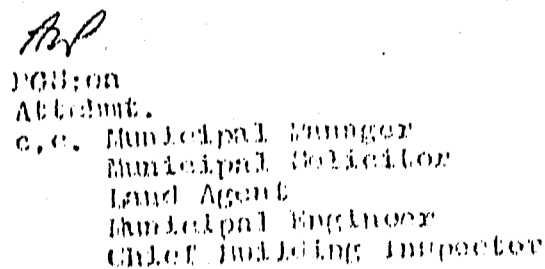 Attchmt.
c.c. Municipal Manager
Municipal Solicitor
Land Agent
Municipal Engineer
Chief Building Inspector